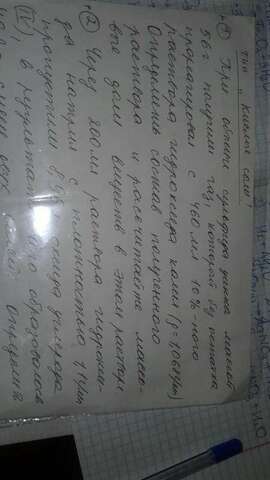 тип „Кислые соли"
① При обжиге сульфида цинка массой
56 г получили газ, который без остатка
прореагировал с 460 мл 10%-ного
раствора гидроксида калия (ρ=1,068 г/мл)
Определить состав полученного
раствора и рассчитайте массо-
вые доли веществ в этом растворе
② Через 200 мл раствора гидрокси-
да натрия с плотностью 1,1 г/мл
пропустили 8,96 л оксида углерода
(IV), в результате чего образовалось
смеси двух солей. Определи